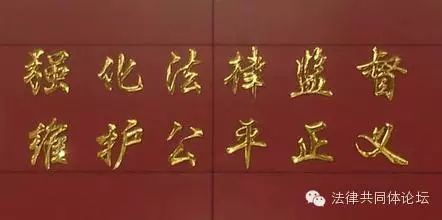 强化法律监督
维护公平正义
法律共同体论坛